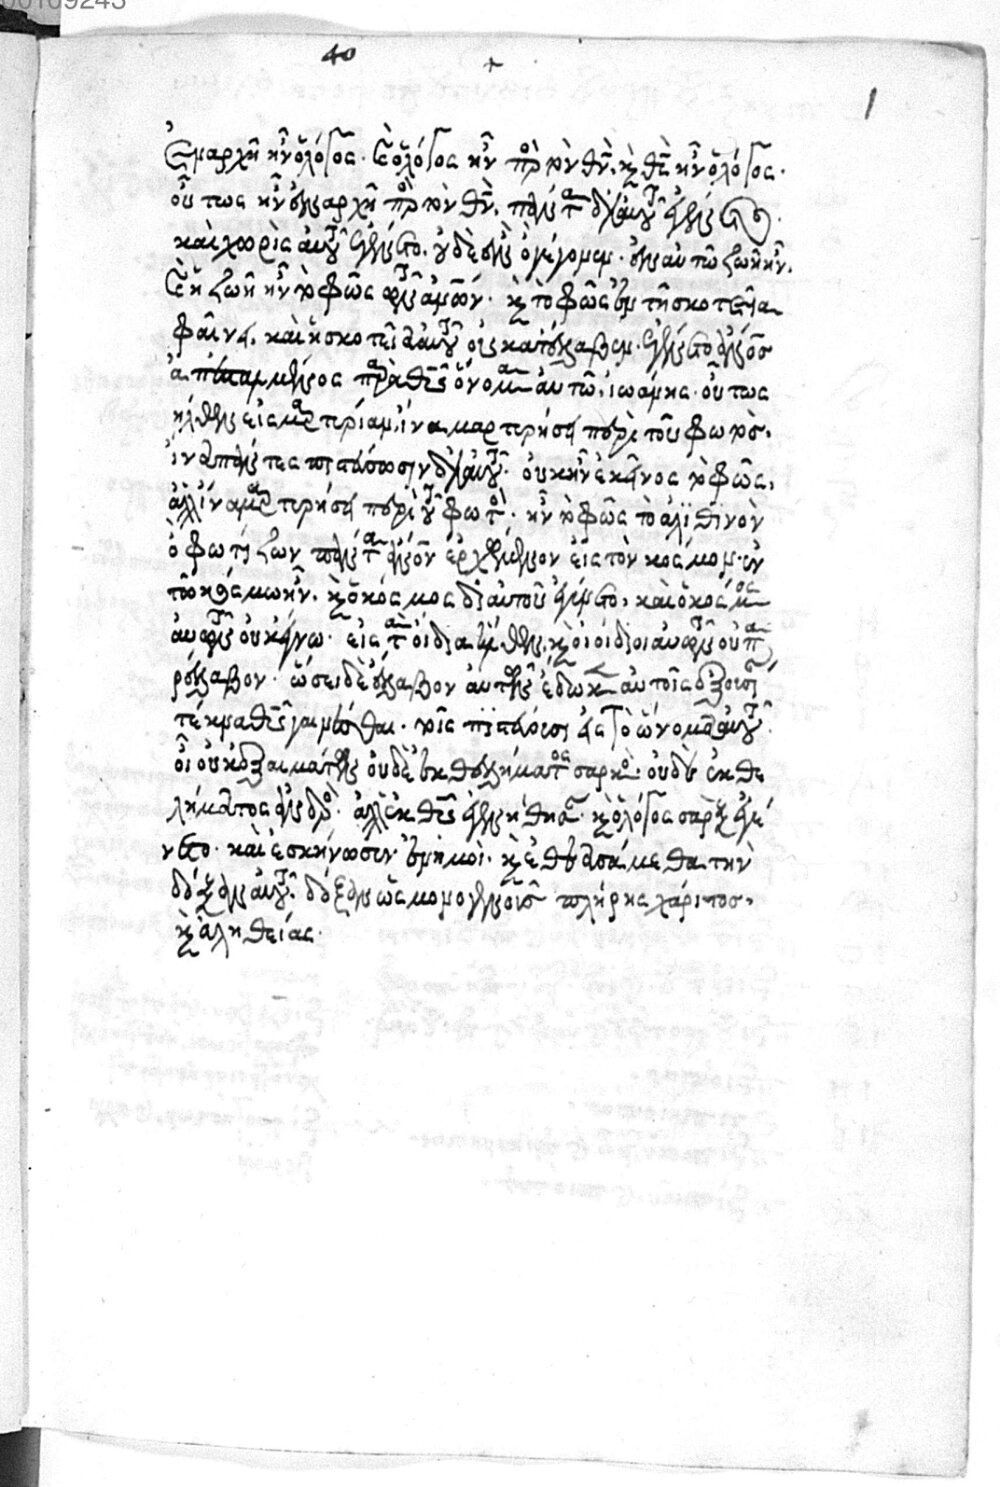 00109243
40 +
1
Ἐναρχῆ ἦν ὁ λόγος. καὶ ὁ λόγος ἦν πρὸς τὸν θν̄. καὶ θς̄ ἦν ὁ λόγος.
οὗτως ἦν ἐν ἀρχῆ πρὸς τὸν θν̄. πάντα δι' αὐτοῦ ἐγένετο.
καὶ χωρὶς αὐτοῦ ἐγένετο. οὐδὲ ἐν ὁ γέγονεν. ἐν αυτῶ ζωὴ ἦν.
καὶ ἡ ζωὴ ἦν τὸ φῶς τῶν ἀνων. καὶ τὸ φῶς ἐν τῆ σκοτεῖα
φαῖνει. καὶ ἡ σκοτεῖα αὐτοῦ οὐ κατέλαβεν. ἐγένετο ἀνος
ἀπεσταλμένος παρὰ θῦ ὄνομα αὐτῶ, ἰωάννης. οὗτως
ἦλθεν εἰς μαρτυρίαν, ἵνα μαρτυρήση περὶ τοῦ φωτὸς.
ἵνα πάντες πιστεύσωσιν δι' αὐτοῦ. οὐκ ἦν ἐκεῖνος τὸ φῶς.
ἀλλ' ἵνα μαρτυρήση περὶ τοῦ φωτὸς. ἦν τὸ φῶς τὸ ἀληθινὸν
ὁ φωτίζων πάντα ἀνον ἐρχόμενον εἰς τὸν κόσμον. ἐν
τῶ κόσμω ἦν. καὶ ὁ κόσμος δι' αὐτοῦ ἐγένετο, καὶ ὁ κόσμος
αὐτὸν οὐκ ἔγνω. εἰς τὰ ἴδια ἦλθεν, καὶ οἱ ἴδιοι αὐτὸν οὐ πα
ρέλαβον. ὥσει δὲ ἔλαβον αὐτὸν ἔδωκεν αὐτοῖς ἐξουσί
τέκνα θῦ γενέσθαι. τοῖς πιστεύουσι εἰς τὸ ὄνομα αὐτοῦ.
οἳ οὐκ ἐξ αιμάτων οὐδὲ ἐκ θελήματος σαρκὸς οὐδὲ ἐκ θε
λήματος ἀνδρὸς. ἀλλ' ἐκ θῦ ἐγεννήθησαν. καὶ ὁ λόγος σὰρξ ἐγέ
νετο. καὶ ἐσκήνωσεν ἐν ἡμοὶ. καὶ ἐθεασάμεθα τὴν
δόξαν αὐτοῦ. δόξαν ὡς μονογενοῦς πλήρης χάριτος.
καὶ ἀληθείας.